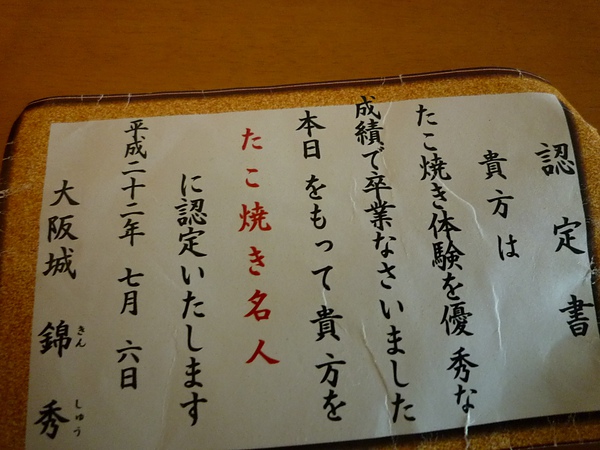 認定書
貴方は
たこ焼き体験を優秀な
成績で卒業なさいました
本日をもって貴方を
たこ焼き名人
に認定いたします
平成二十二年 七月 六日
大阪城 錦秀
きん しゅう